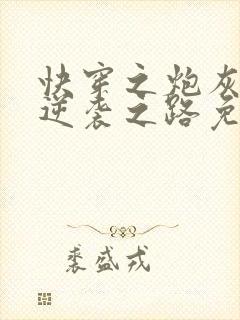 快穿之炮灰
逆袭之路免
裘盛戎